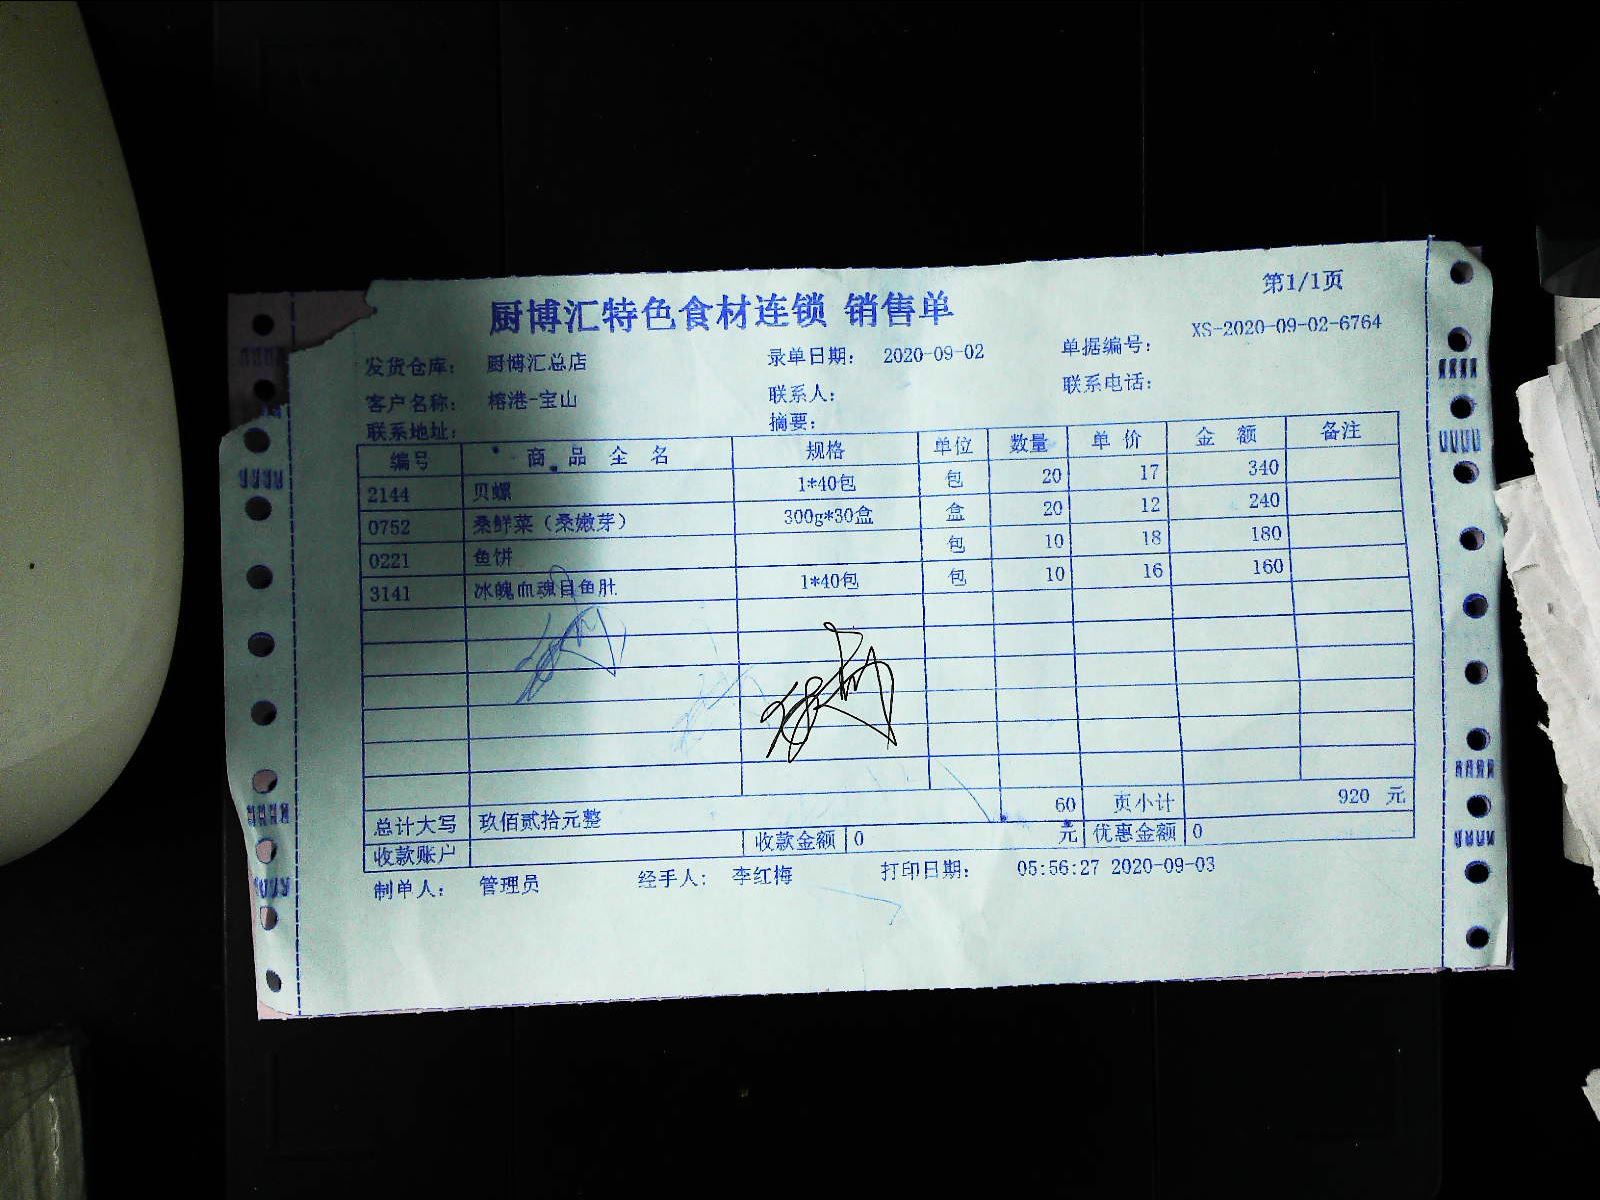 第1/1页
厨博汇特色食材连锁 销售单
XS-2020-09-02-6764
发货仓库： 厨博汇总店 录单日期： 2020-09-02 单据编号：
客户名称： 榕港-宝山 联系人： 联系电话：
联系地址： 摘要：
编号 商品全名 规格 单位 数量 单价 金额 备注
2144 贝螺 1*40包 包 20 17 340
0752 桑鲜菜（桑嫩芽） 300g*30盒 盒 20 12 240
0221 鱼饼 包 10 18 180
3141 冰魄血魂目鱼肚 1*40包 包 10 16 160
总计大写 玖佰贰拾元整 60 页小计 920 元
收款账户 收款金额 0 元 优惠金额 0
制单人： 管理员 经手人： 李红梅 打印日期： 05:56:27 2020-09-03